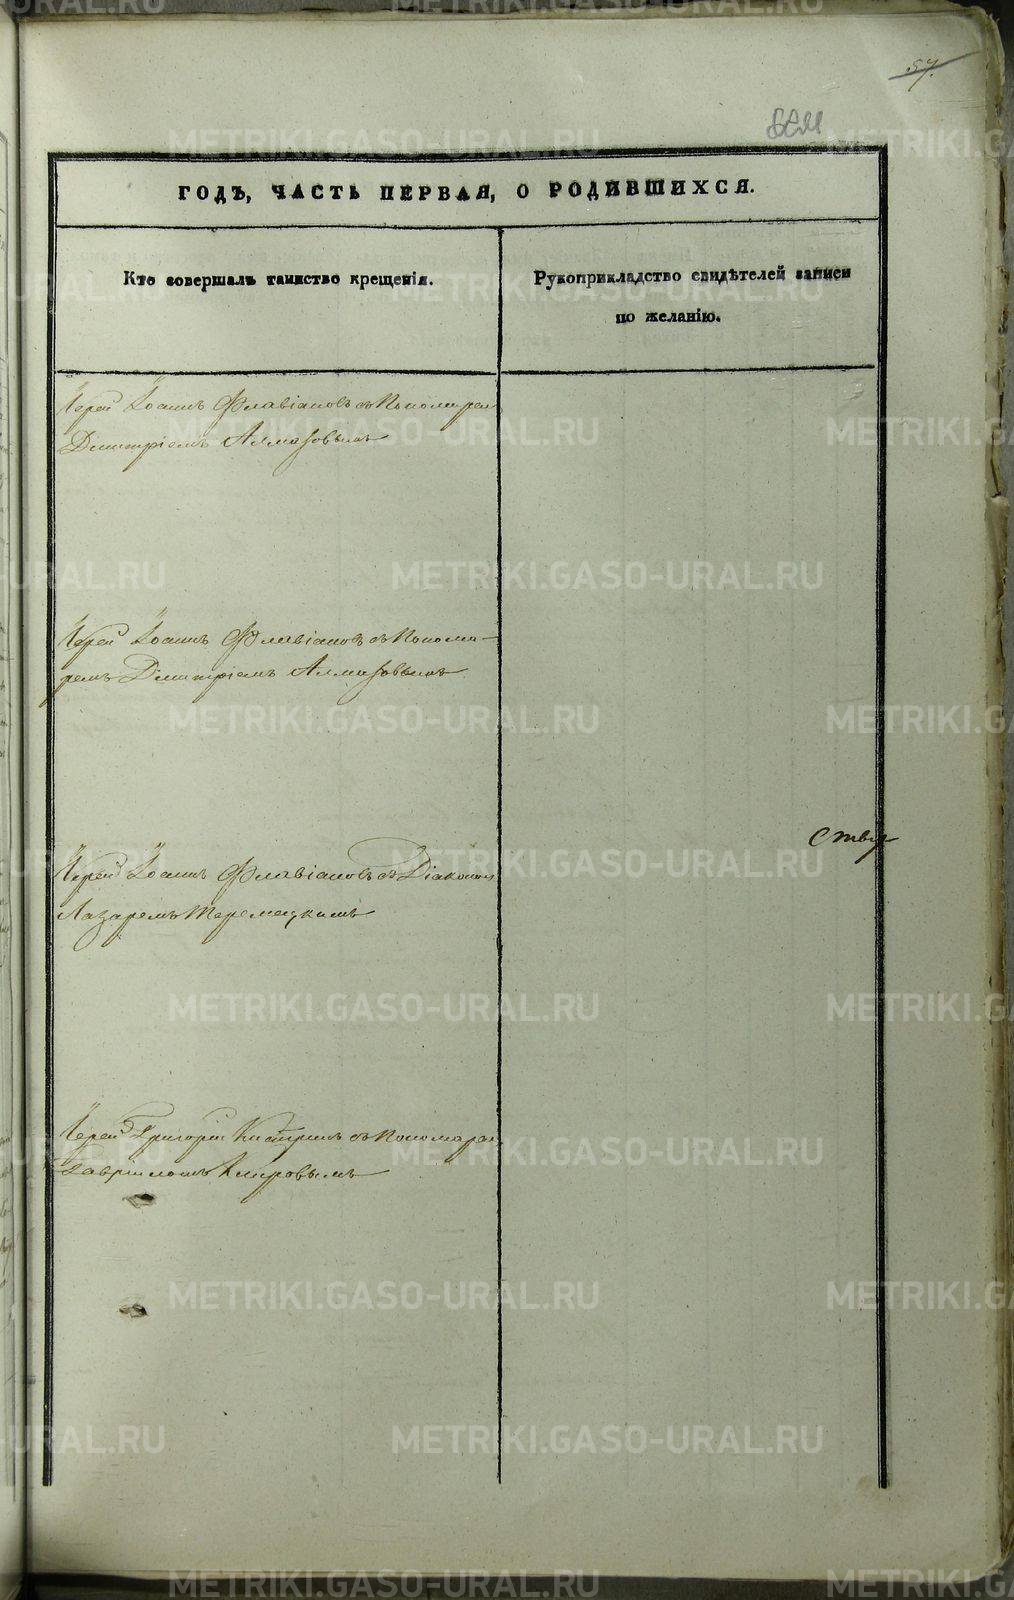 57.
ГОДЪ, ЧАСТЬ ПЕРВАЯ, О РОДИВШИХСЯ.
Кто совершалъ таинство крещенія.
Рукоприкладство свидѣтелей записи
по желанію.
Іерей Іоаннъ Флавіановъ съ Пономарем
Димитріемъ Алмазовымъ
Іерей Іоаннъ Флавіановъ съ Понома-
ремъ Димитріемъ Алмазовымъ
ству
Іерей Іоаннъ Флавіановъ съ Діакономъ
Лазаремъ Теремецкимъ
Іерей Григорій съ Пономарем
Гавріиломъ Кировымъ
METRIKI.GASO-URAL.RU